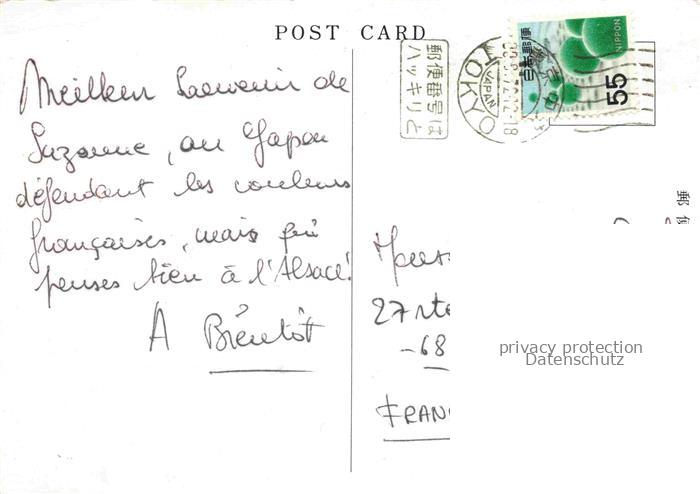 POST CARD
Meilleur Souvenir de
Suzanne, au Japon
défendant les couleurs
françaises, mais qui
penses bien à l'Alsace!
A Bientôt
郵便番号は
ハッキリと
TOKYO
JAPAN
日本郵便
NIPPON
55
郵便
27 rte
-68
FRAN
privacy protection
Datenschutz